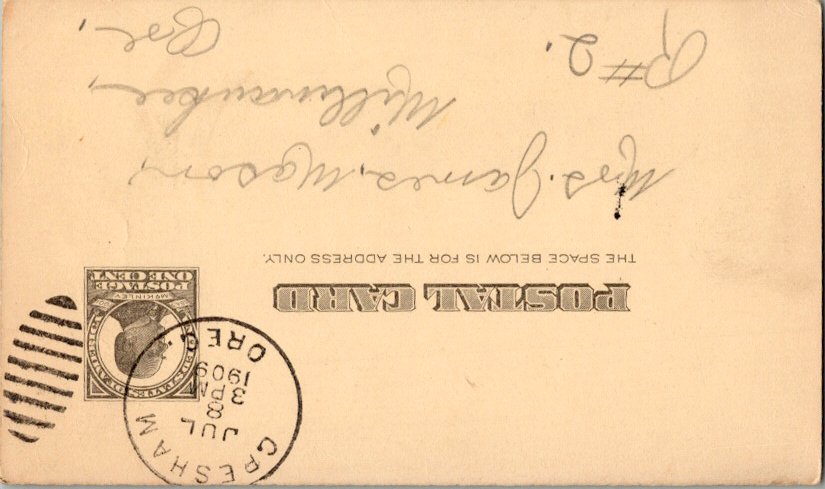 GRESHAM
OREG
JUL
8
3 PM
1909
McKINLEY
POSTAGE
ONE CENT
POSTAL CARD
THE SPACE BELOW IS FOR THE ADDRESS ONLY.
Mrs. James, Mason,
Millwaukee,
R#2. Ore,